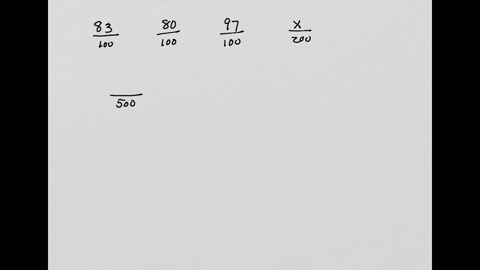 83/100 80/100 97/100 x/200
/500